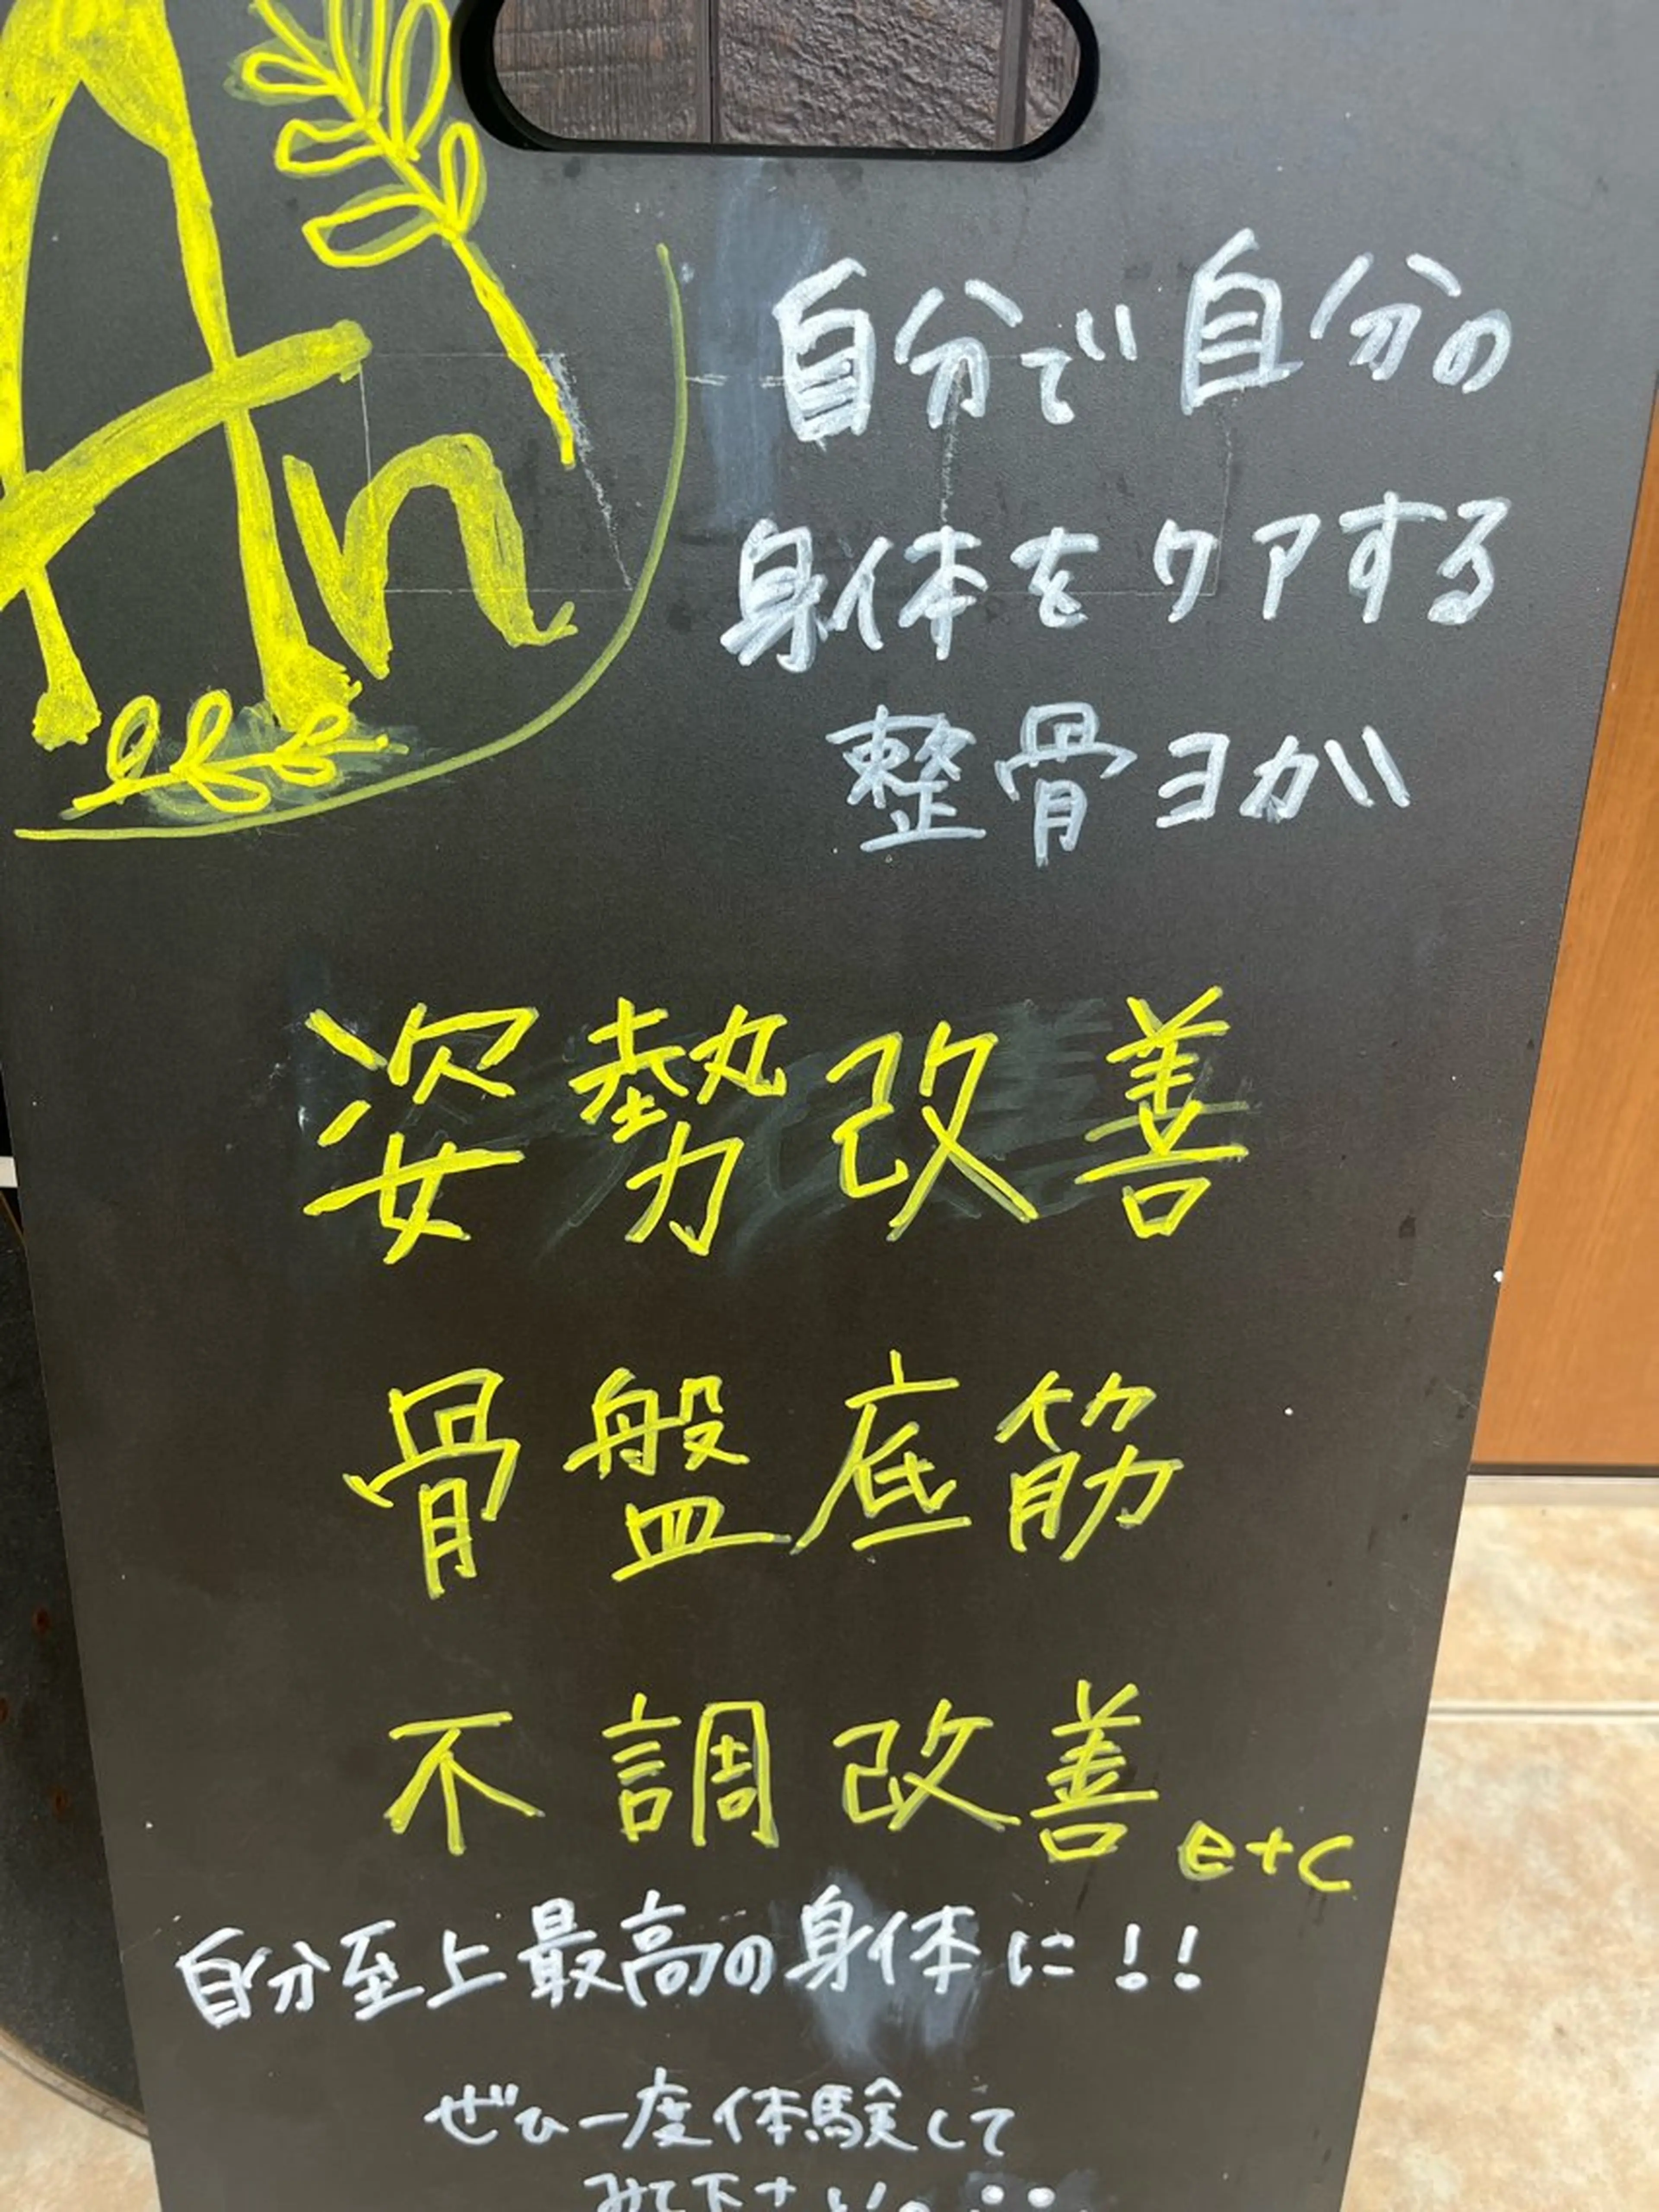 An
自分で自分の
身体をケアする
整骨ヨガ
姿勢改善
骨盤底筋
不調改善etc
自分至上最高の身体に!!
ぜひ一度体験して
みて下さい。